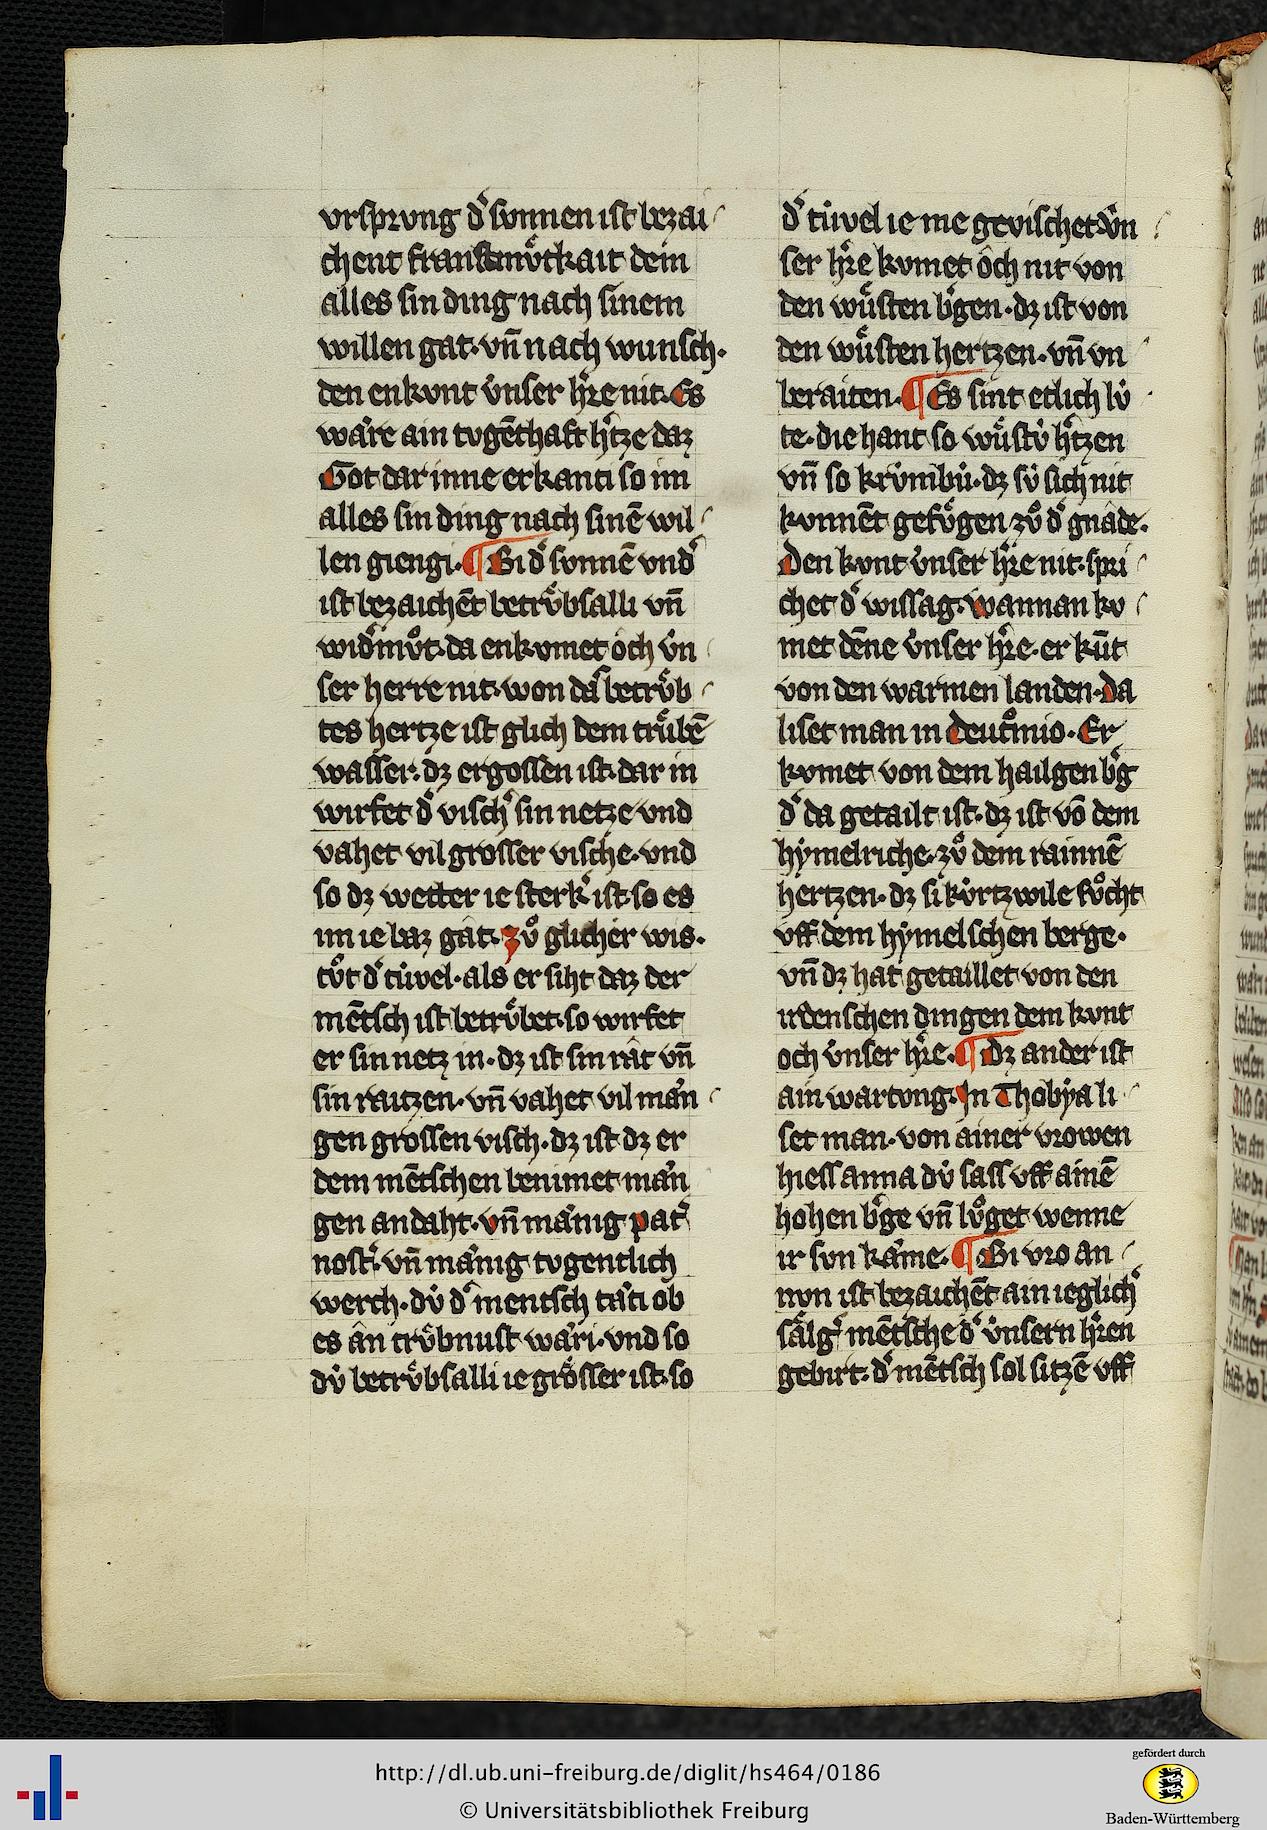 vrsprvng d͛ svnnen ist bezai
chent franstmuͤtkait dem
alles sin ding nach sinem
willen gat· vn̄ nach wunsch·
den enkvnt v̇nser hr͛e nit· Es
wa᷇re ain tvgēthaft h͛tze daz
Got dar inne erkanti so im
alles sin ding nach sinē wil
len giengi· ¶ Bi d͛ svnnē vnd͛
ist bezaichēt betruͤbsalli vn̄
wid͛muͦt· da enkvmet och v̇n
ser herre nit· won da᷇ betruͤb
tes hertze ist glich dem truͤbē
wasser· dz ergossen ist· dar in
wirfet d͛ visch͛ sin netze vnd
vahet vil grosser vische· vnd
so dz wetter ie sterk͛ ist· so es
im ie baz gât· zuͦ glicher wis·
tuͦt d͛ tiv̇el· als er siht daz der
mētsch ist betruͤbet· so wirfet
er sin netz in· dz ist sin rât vn̄
sin raitzen· vn̄ vahet vil ma᷇n
gen grossen visch· dz ist dz er
dem mētschen benimet ma᷇n
gen andaht· vn̄ ma᷇nig pat͛
nost͛· vn̄ ma᷇nig tvgentlich
werch· dv̇ d͛ mentsch ta᷇ti ob
es ân truͤbnust wa᷇ri· vnd so
dv̇ betruͤbsalli ie groͤsser ist· so
d͛ tiv̇el ie me gevischet v̇n
ser hr͛e kvmet ôch nit von
den wuͤsten b͛gen· dz ist von
den wuͤsten hertzen· vn̄ vn
beraiten· ¶ Es sint etlich lv̇
te· die hant so wuͤstv̇ h͛tzen
vn̄ so krv̇mbv̇· dz sv̇ sich nit
kvnnēt gefuͤgen zuͦ d͛ gnâde·
Den kvnt v̇nser hr͛e nit· spri
chet d͛ wissag· wannan kv
met dēne v̇nser hr͛e· er kūt
von den warmen landen· Da
liset man in Deut͛mio· Er
kvmet von dem hailgen b͛g
d͛ da getailt ist· dz ist vō dem
hẏmelriche· zuͦ dem rainnē
hertzen· dz si kv̇rtzwile suͦcht
vff dem hẏmelschen berge·
vn̄ dz hat getaillet von den
irdenschen dingen dem kvnt
och v̇nser hr͛e· ¶ Dz ander ist
ain wartvng· Jn Thobẏa li
set man· von ainer vrowen
hiess anna dv̇ sass vff ainē
hohen b͛ge vn̄ luͦget wenne
ir svn ka᷇me· ¶ Bi vro an
nvn ist bezaichēt ain ieglich͛
sa᷇lg͛ mētsche d͛ v̇nsern hr͛en
gebirt· d͛ mētsch sol sitzē vff
http://dl.ub.uni-freiburg.de/diglit/hs464/0186
© Universitätsbibliothek Freiburg
gefördert durch
Baden-Württemberg